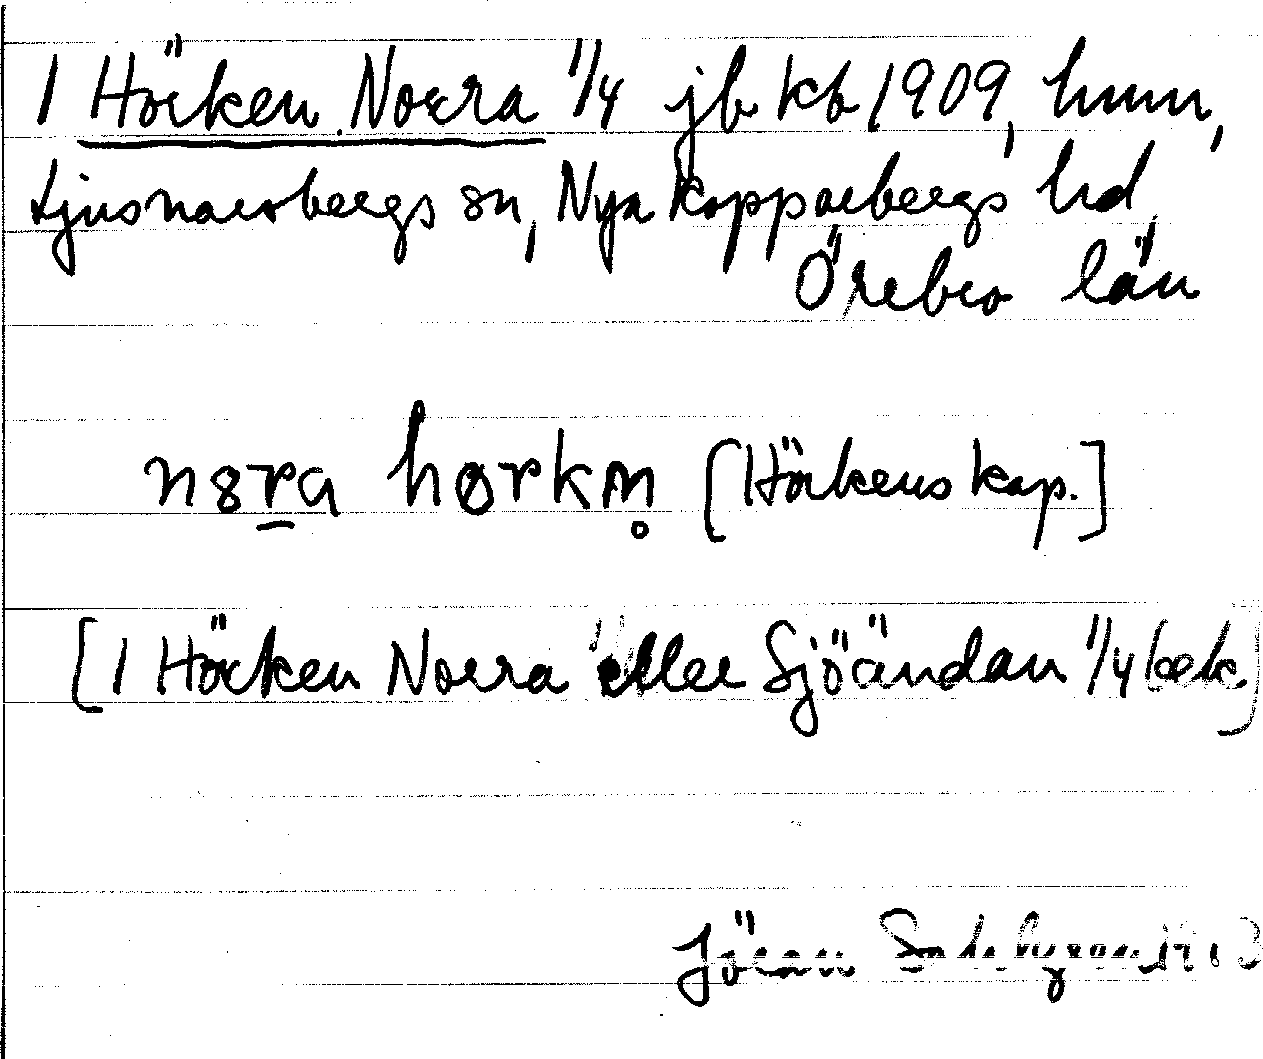 1 Hörken Norra 1/4 jb kb 1909, hmn,
Ljusnarsbergs sn, Nya Kopparbergs hd,
Örebro län
nora hørkn̥ [Hörkens kap.]
[1 Hörken Norra eller Sjöändan 1/4 bek.]
Jöran Sahlgren 1913